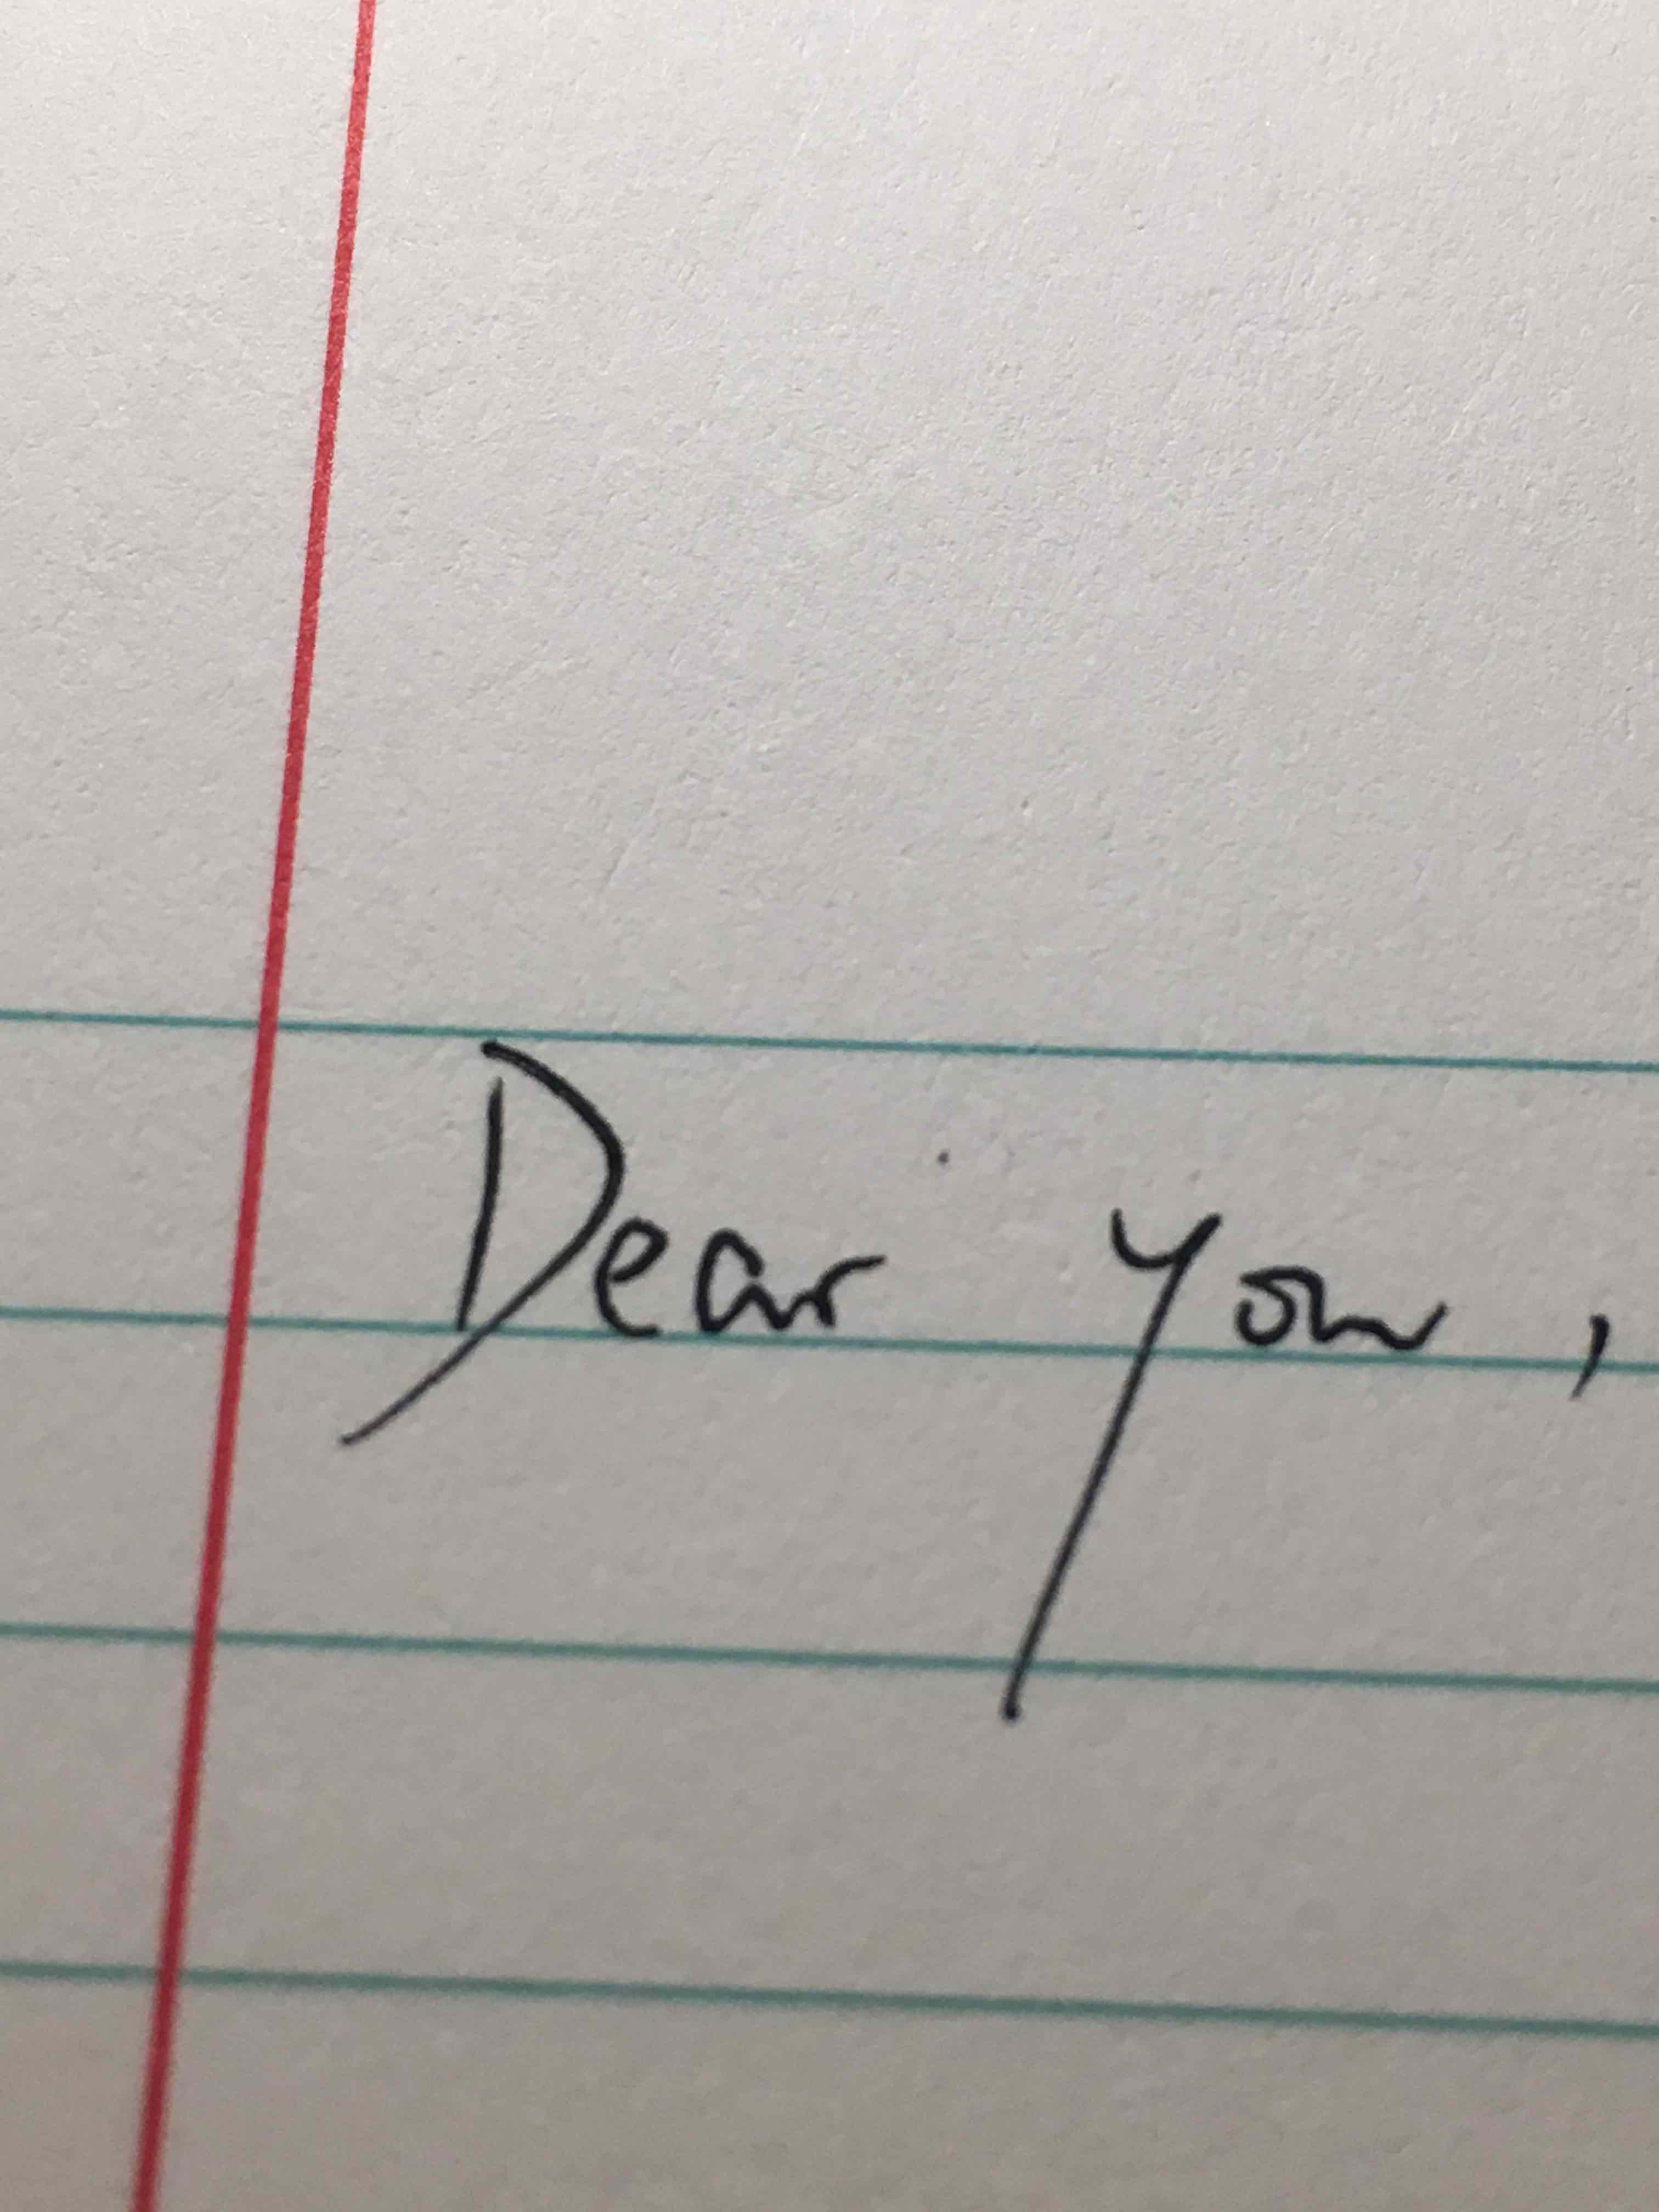 Dear you,